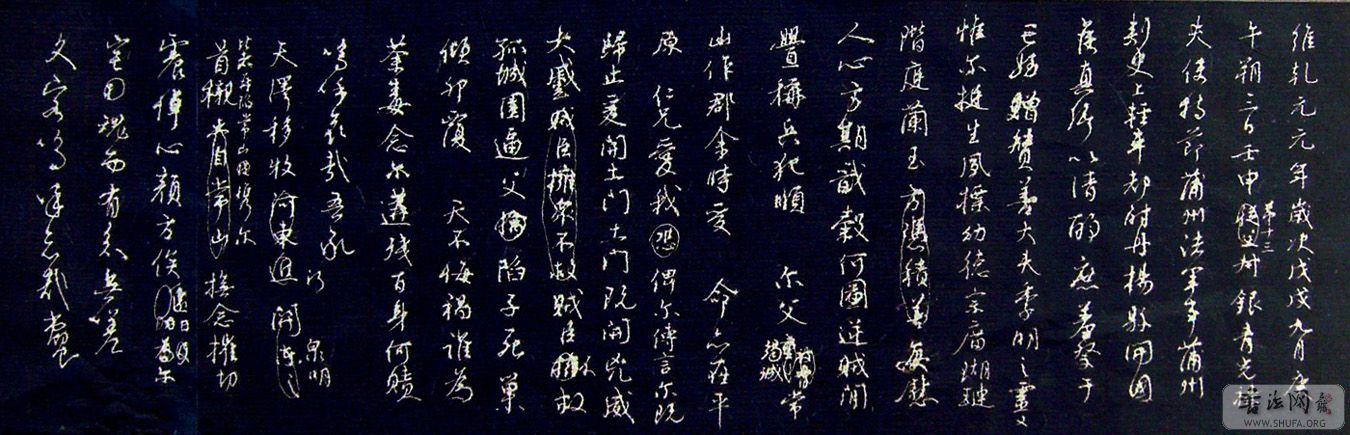 維乾元元年歲次戊戌九月庚
午朔三日壬申第十三叔銀青光祿
夫使持節蒲州諸軍事蒲州
刺史上輕車都尉丹楊縣開國
侯真卿以清酌庶羞祭于
亡姪贈贊善大夫季明之靈曰
惟爾挺生夙標幼德宗廟瑚璉
階庭蘭玉方憑積善每慰
人心方期戩穀何圖逆賊閒
釁稱兵犯順 爾父竭誠常
山作郡余時受 命亦在平
原 仁兄愛我恐俾爾傳言爾既
歸止爰開土門土門既開凶威
大蹙賊臣擁衆不救賊臣不救
孤城圍逼父擒陷子死巢
傾卵覆 天不悔禍誰為
荼毒念爾遘殘百身何贖
嗚呼哀哉吾承
天澤移牧河東近 泉明
比者再陷常山攜爾
首櫬常山撫念摧切
震悼心顏方俟遠日爾
宅魂而有知無嗟
久客嗚呼哀哉尚饗
书法网
WWW.SHUFA.ORG